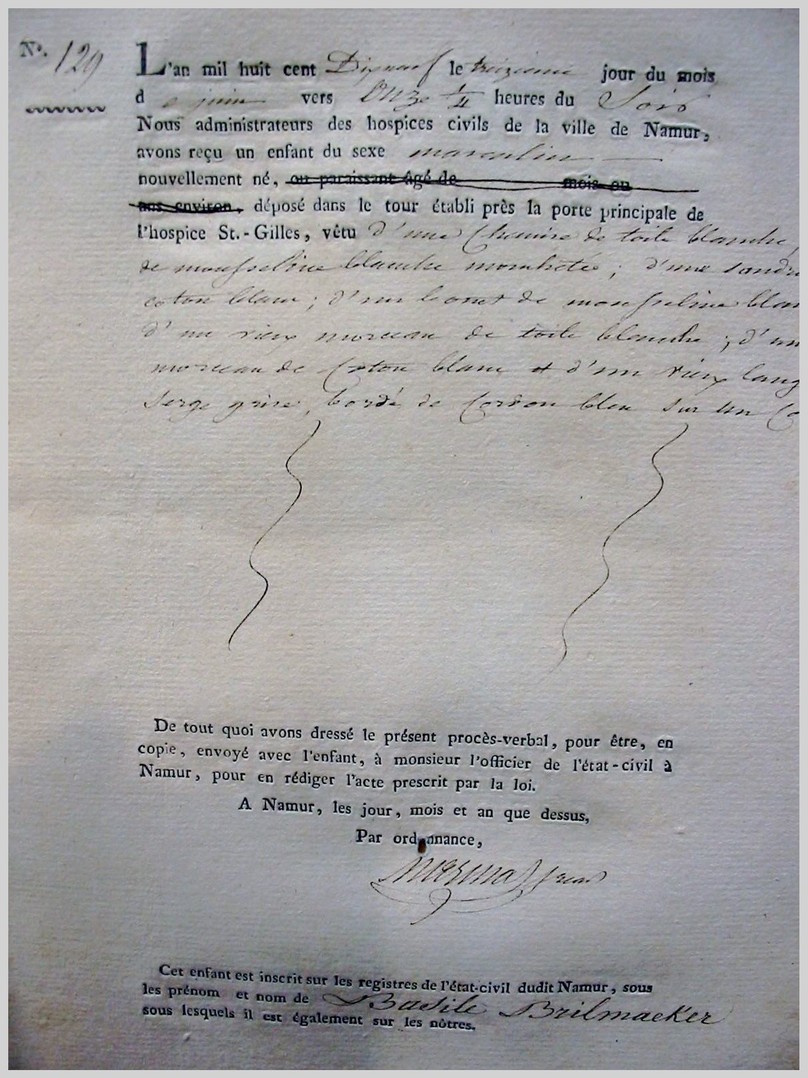 N.o 129
L'an mil huit cent Dixneuf le treizieme jour du mois
de juin vers Onze 1/4 heures du Soir
Nous administrateurs des hospices civils de la ville de Namur,
avons reçu un enfant du sexe masculin
nouvellement né, ou paraissant âgé de mois ou
ans environ, déposé dans le tour établi près la porte principale de
l'hospice St.-Gilles, vêtu d'une Chemise de toile blanche,
de mousseline blanche mouchetée; d'une
coton blanc; d'un bonet de mousseline blan
d'un vieux morceau de toile blanche; d'un
morceau de Coton blanc et d'un vieux lang
Serge grise, bordé de Cordon bleu Sur un Co
De tout quoi avons dressé le présent procès-verbal, pour être, en
copie, envoyé avec l'enfant, à monsieur l'officier de l'état-civil à
Namur, pour en rédiger l'acte prescrit par la loi.
A Namur, les jour, mois et an que dessus,
Par ordonnance,
Cet enfant est inscrit sur les registres de l'état-civil dudit Namur, sous
les prénom et nom de Basile Brilmaeker
sous lesquels il est également sur les nôtres.